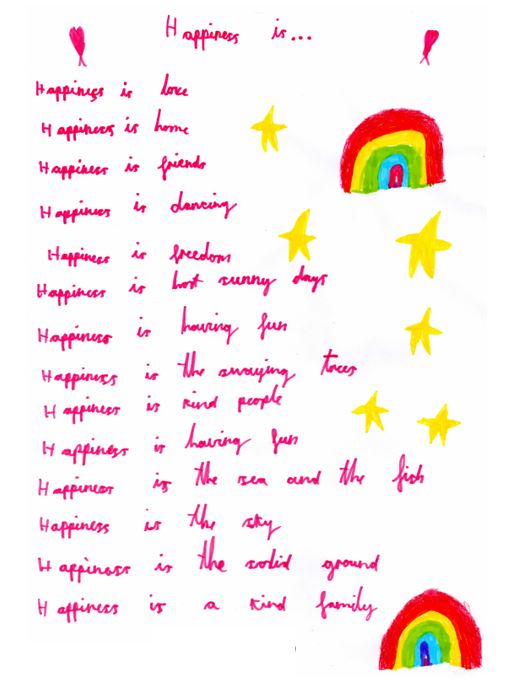 Happiness is...
Happiness is love
Happiness is home
Happiness is friends
Happiness is dancing
Happiness is freedom
Happiness is hot sunny days
Happiness is having fun
Happiness is the swaying trees
Happiness is kind people
Happiness is having fun
Happiness is the sea and the fish
Happiness is the sky
Happiness is the solid ground
Happiness is a kind family